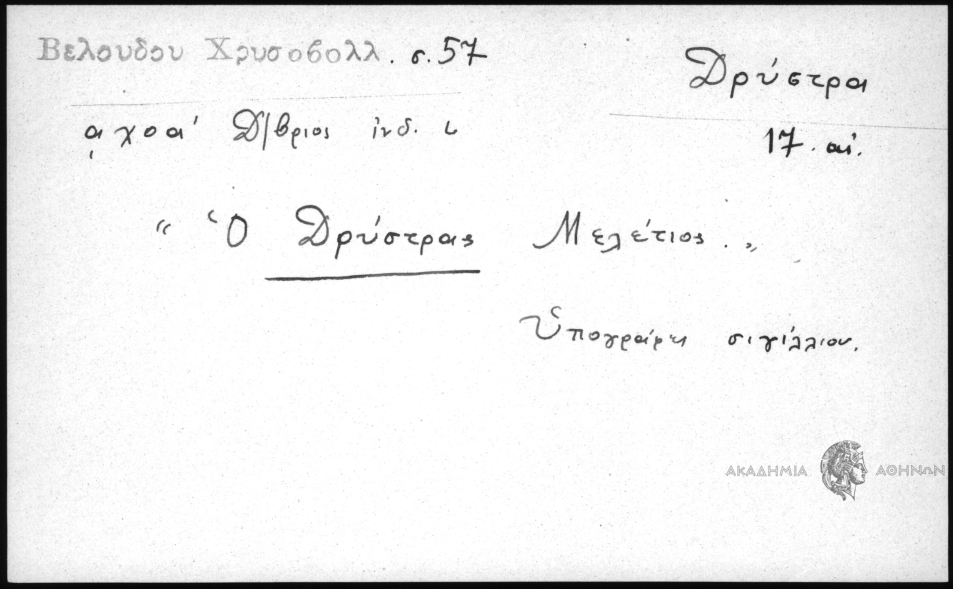 Βελουδου Χρυσοβολλ. σ. 57
Δρύστρα
͵αχοα' Δ/βριος ἰνδ. ι
17. αἰ.
“ Ὁ Δρύστρας Μελέτιος. „
Ὑπογράφει σιγίλλιον.
ΑΚΑΔΗΜΙΑ ΑΘΗΝΩΝ